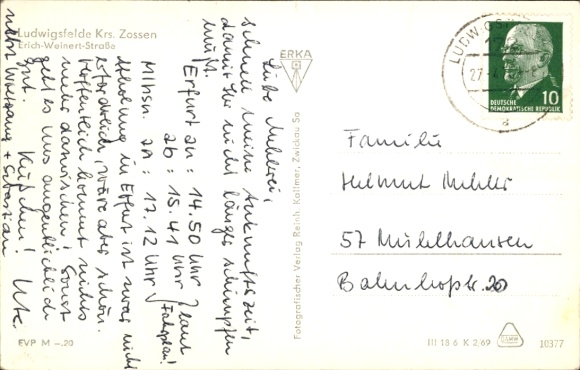 Ludwigsfelde Krs. Zossen
Erich-Weinert-Straße
Liebe Mehlers,
schnell meine Ankunftszeit,
damit Ihr nicht länger schimpfen
müßt.
Erfurt an: 14.50 Uhr
ab: 15.41 Uhr } laut
Mlhsn. an: 17.12 Uhr Fahrplan!
Abholung in Erfurt ist zwar nicht
erforderlich, wäre aber schön.
Hoffentlich kommt nichts
mehr dazwischen! Sonst
geht es uns augenblicklich
gut. Küßchen! Ute
nebst Wolfgang + Sebastian
EVP M -.20
ERKA
Fotografischer Verlag Reinh. Kallmer, Zwickau Sa
LUDWIGSF
27.4.
a
DEUTSCHE
DEMOKRATISCHE REPUBLIK
10
Familie
Helmut Mehler
57 Mühlhausen
Bahnhofstr. 20
III 18 6 K 2/69
10377